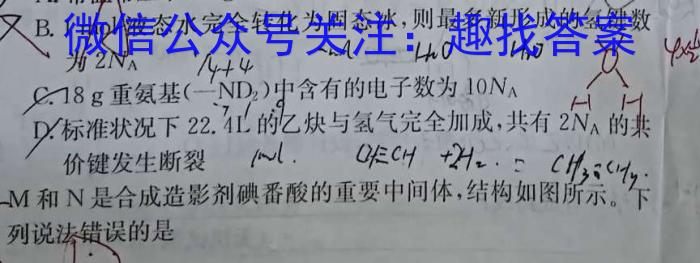 B. 液态水完全转化为固态冰,则最多新形成的氢键数
微信公众号关注:趣找答案
为 2Nᴀ
C. 18 g 重氨基(—ND₂)中含有的电子数为 10Nᴀ
D. 标准状况下 22.4L 的乙炔与氢气完全加成,共有 2Nᴀ 的共
价键发生断裂 1mol. CH≡CH +2H₂
M 和 N 是合成造影剂碘番酸的重要中间体,结构如图所示。下
列说法错误的是